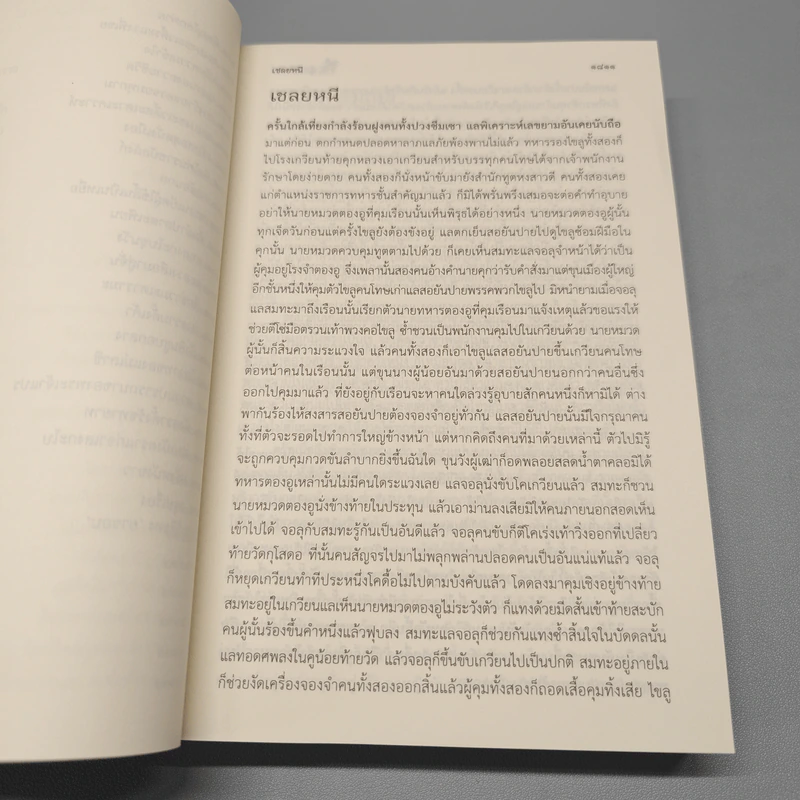 เชลยหนี
๑๘๑๑
เชลยหนี
ครั้นใกล้เที่ยงกำลังร้อนฝูงคนทั้งปวงซึมเซา แลพิเคราะห์เลขยามอันเคยนับถือ
มาแต่ก่อน ตกกำหนดปลอดหาลาภแลภัยพ้องพานไม่แล้ว ทหารรองไขลูทั้งสองก็
ไปโรงเกวียนท้ายคุกหลวงเอาเกวียนสำหรับบรรทุกคนโทษได้จากเจ้าพนักงาน
รักษาโดยง่ายดาย คนทั้งสองก็นั่งหน้าขับมายังสำนักทูตหงสาวดี คนทั้งสองเคย
แก่ตำแหน่งราชการทหารชั้นสำคัญมาแล้ว ก็มิได้พรั่นพรึงเสมอจะต่อคำทำอุบาย
อย่าให้นายหมวดตองอูที่คุมเรือนนั้นเห็นพิรุธได้อย่างหนึ่ง นายหมวดตองอูผู้นั้น
ทุกเจ็ดวันก่อนแต่ครั้งไขลูยังต้องขังอยู่ แลดตกเย็นสอยันปายไปดูไขลูซ้อมฝีมือใน
คุกนั้น นายหมวดควบคุมทูตตามไปด้วย ก็เคยเห็นสมทะแลจอลุจำหน้าได้ว่าเป็น
ผู้คุมอยู่โรงจำตองอู จึงเพลานั้นสองคนอ้างคำนายคุกว่ารับคำสั่งมาแต่ขุนเมืองผู้ใหญ่
อีกชั้นหนึ่งให้คุมตัวไขลูคนโทษเก่าแลสอยันปายพรรคพวกไขลูไป มิหนำยามเมื่อจอลุ
แลสมทะมาถึงเรือนนั้นเรียกตัวนายทหารตองอูที่คุมเรือนมาแจ้งเหตุแล้วขอแรงให้
ช่วยตีโซ่มือตรวนเท้าพวงคอไขลู ซ้ำชวนเป็นพนักงานคุมไปในเกวียนด้วย นายหมวด
ผู้นั้นก็สิ้นความระแวงใจ แล้วคนทั้งสองก็เอาไขลูแลสอยันปายขึ้นเกวียนคนโทษ
ต่อหน้าคนในเรือนนั้น แต่ขุนนางผู้น้อยอันมาด้วยสอยันปายนอกกว่าคนอื่นซึ่ง
ออกไปคุมมาแล้ว ที่ยังอยู่กับเรือนจะหาคนใดล่วงรู้อุบายสักคนหนึ่งก็หามิได้ ต่าง
พากันร้องไห้สงสารสอยันปายต้องจองจำอยู่ทั่วกัน แลสอยันปายนั้นมีใจกรุณาคน
ทั้งที่ตัวจะรอดไปทำการใหญ่ข้างหน้า แต่หากคิดถึงคนที่มาด้วยเหล่านี้ ตัวไปมิรู้
จะถูกควบคุมกวดขันลำบากยิ่งขึ้นฉันใด ขุนวังผู้เฒ่าก็อดพลอยสลดน้ำตาคลอมิได้
ทหารตองอูเหล่านั้นไม่มีคนใดระแวงเลย แลจอลุนั่งขับโคเกวียนแล้ว สมทะก็ชวน
นายหมวดตองอูนั่งข้างท้ายในประทุน แล้วเอาม่านลงเสียมิให้คนภายนอกสอดเห็น
เข้าไปได้ จอลุกับสมทะรู้กันเป็นอันดีแล้ว จอลุคนขับก็ตีโคเร่งเท้าวิ่งออกที่เปลี่ยว
ท้ายวัดกุโสดอ ที่นั้นคนสัญจรไปมาไม่พลุกพล่านปลอดคนเป็นอันแน่แท้แล้ว จอลุ
ก็หยุดเกวียนทำทีประหนึ่งโคดื้อไม่ไปตามบังคับแล้ว โดดลงมาคุมเชิงอยู่ข้างท้าย
สมทะอยู่ในเกวียนแลเห็นนายหมวดตองอูไม่ระวังตัว ก็แทงด้วยมีดสั้นเข้าท้ายสะบัก
คนผู้นั้นร้องขึ้นคำหนึ่งแล้วฟุบลง สมทะแลจอลุก็ช่วยกันแทงซ้ำสิ้นใจในบัดดลนั้น
แลทอดศพลงในคูน้อยท้ายวัด แล้วจอลุก็ขึ้นขับเกวียนไปเป็นปกติ สมทะอยู่ภายใน
ก็ช่วยงัดเครื่องจองจำคนทั้งสองออกสิ้นแล้วผู้คุมทั้งสองก็ถอดเสื้อคุมทิ้งเสีย ไขลู